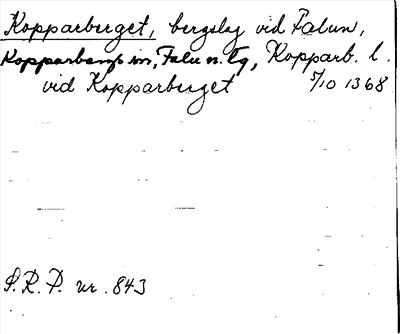 Kopparberget, bergslag vid Falun,
Kopparbergs sn, Falu n. tg, Kopparb. l.
vid Kopparberget 5/10 1368
S.R.P. nr. 843